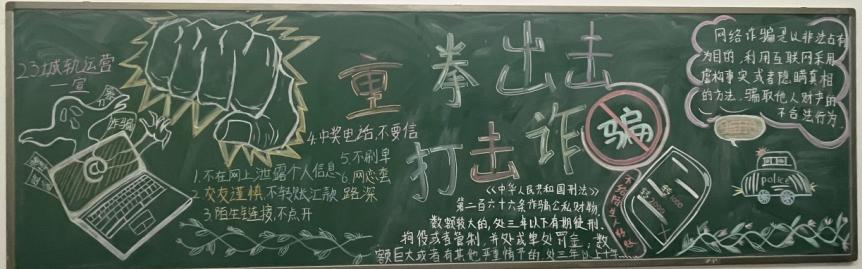 23城轨运营
一宣
诈骗
重拳出击
打击诈骗
1.不在网上泄露个人信息
2.交友谨慎,不转账汇款
3.陌生链接,不点开
4.中奖电话,不要信
5.不刷单
6.网恋套
路深
《中华人民共和国刑法》
第二百六十六条诈骗公私财物,
数额较大的,处三年以下有期徒刑,
拘役或者管制,并处或单处罚金;数
额巨大或者有其他严重情节的,处三年以上十年……
网络诈骗是以非法占有
为目的,利用互联网采用
虚构事实或者隐瞒真相
的方法,骗取他人财产的
不合法行为.
police